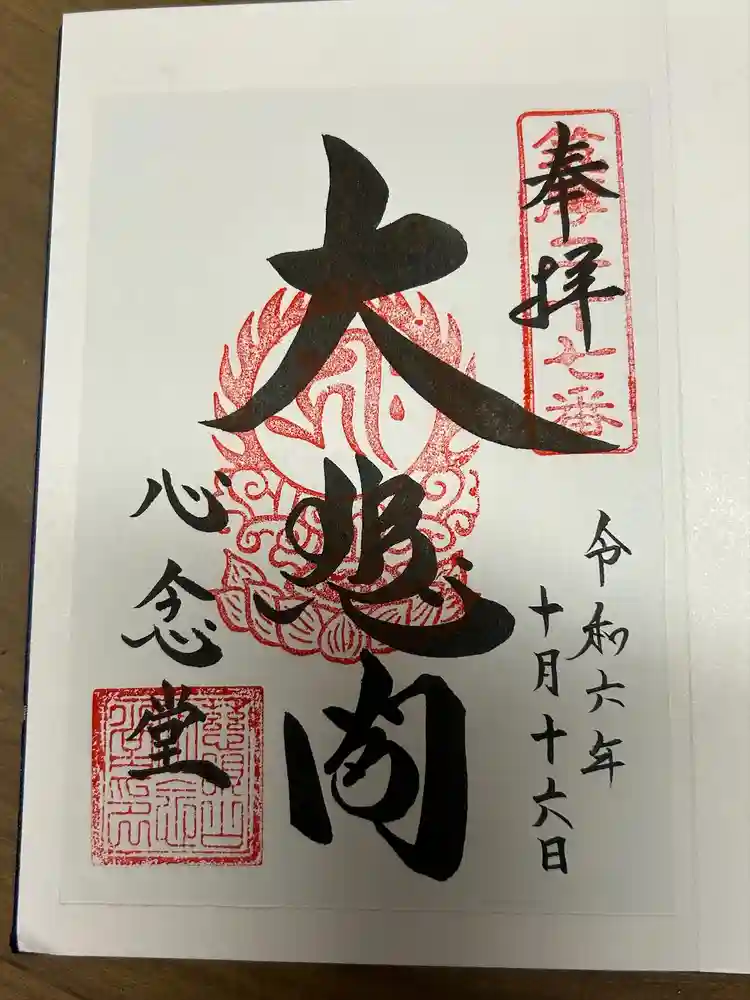 奉拝
十七番
令和六年
十月十六日
大悲閣
心念堂